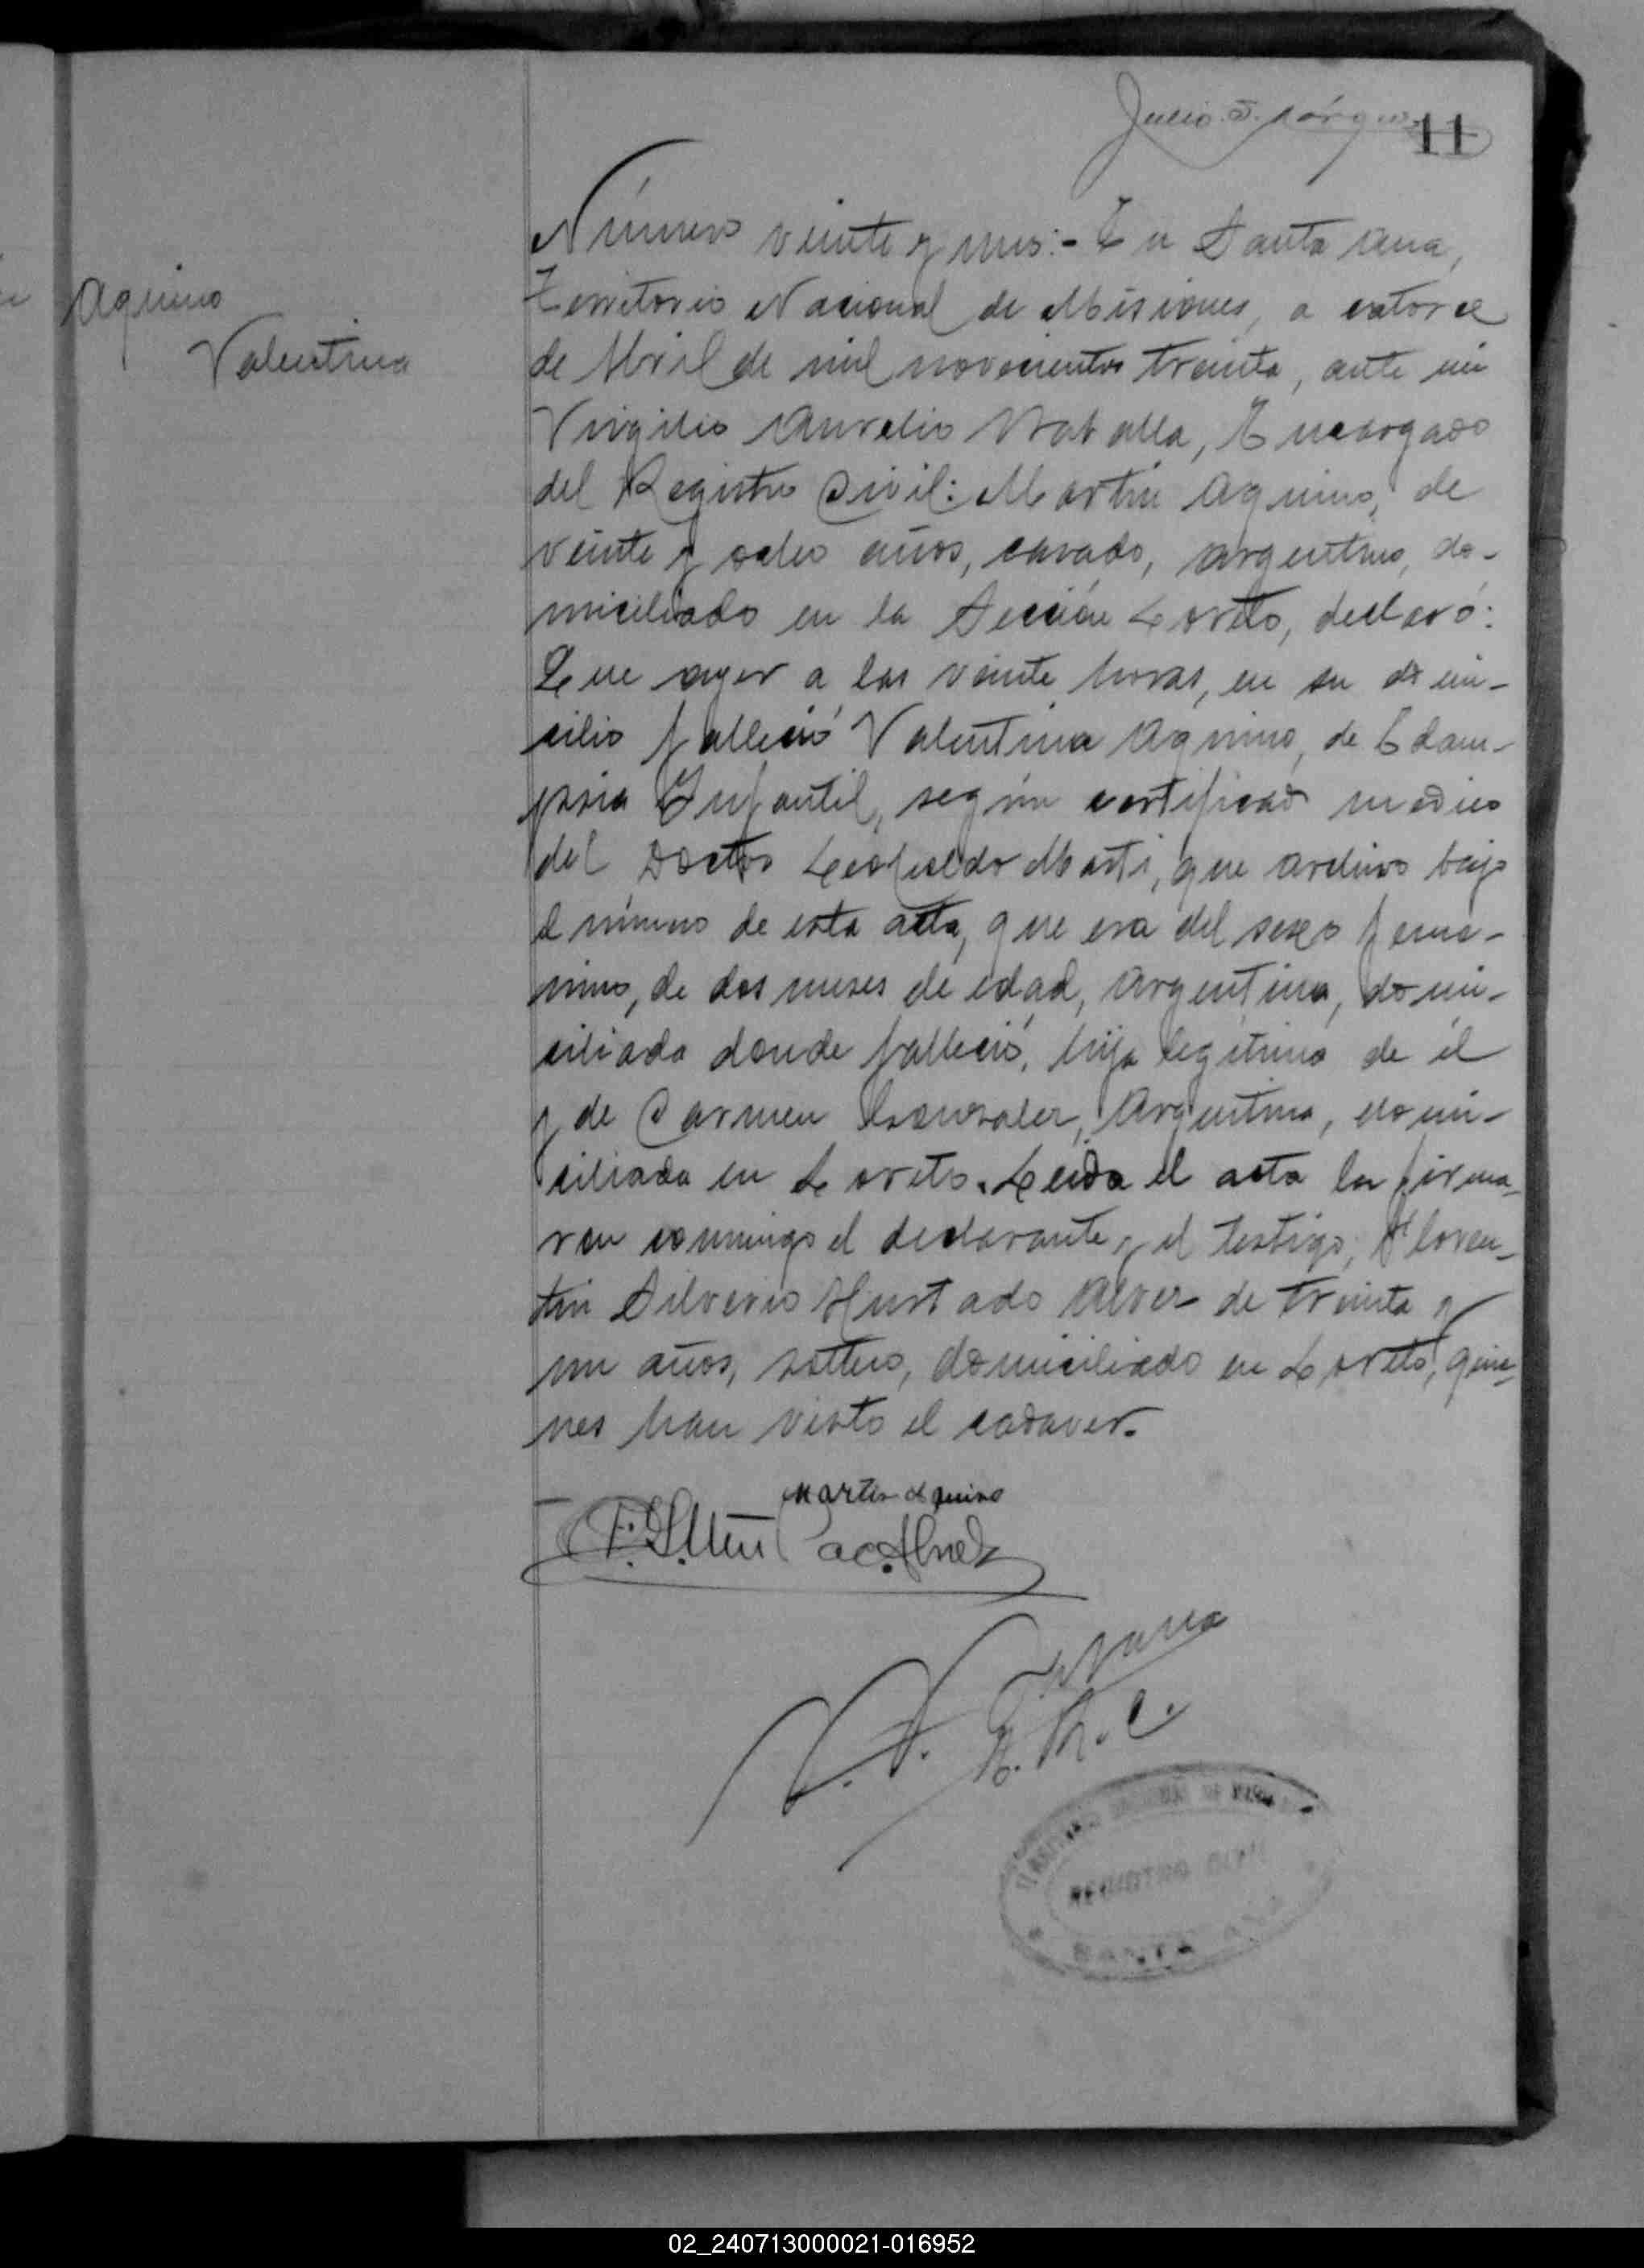 Julio
11
Aquino
Valentina
Número veinte y uno:- En Santa Ana,
Territorio Nacional de Misiones, a catorce
de Abril de mil novecientos treinta, ante mi
Virgilio Aurelio, Encargado
del Registro Civil: Martin Aquino, de
veinte y ocho años, casado, argentino, do-
miciliado en la Sección Loreto, declaró:
Que ayer a las veinte horas, en su domi-
cilio falleció Valentina Aquino, de Eclam-
psia Infantil, según certificado medico
del Doctor Leopoldo Marti, que archivo bajo
el número de esta acta, que era del sexo feme-
nino, de dos meses de edad, Argentina, domi-
ciliada donde falleció, hija legítima de él
y de Carmen Gonzalez, Argentina, domi-
ciliada en Loreto. Leida el acta la firma-
ron conmigo el declarante y el testigo, Floren-
tin Silverio Hurtado Alvez de treinta y
un años, soltero, domiciliado en Loreto, quie-
nes han visto el cadaver.
Martin Aquino
E.R.C.
TERRITORIO NACIONAL DE MISIONES
REGISTRO CIVIL
SANTA ANA
02_240713000021-016952